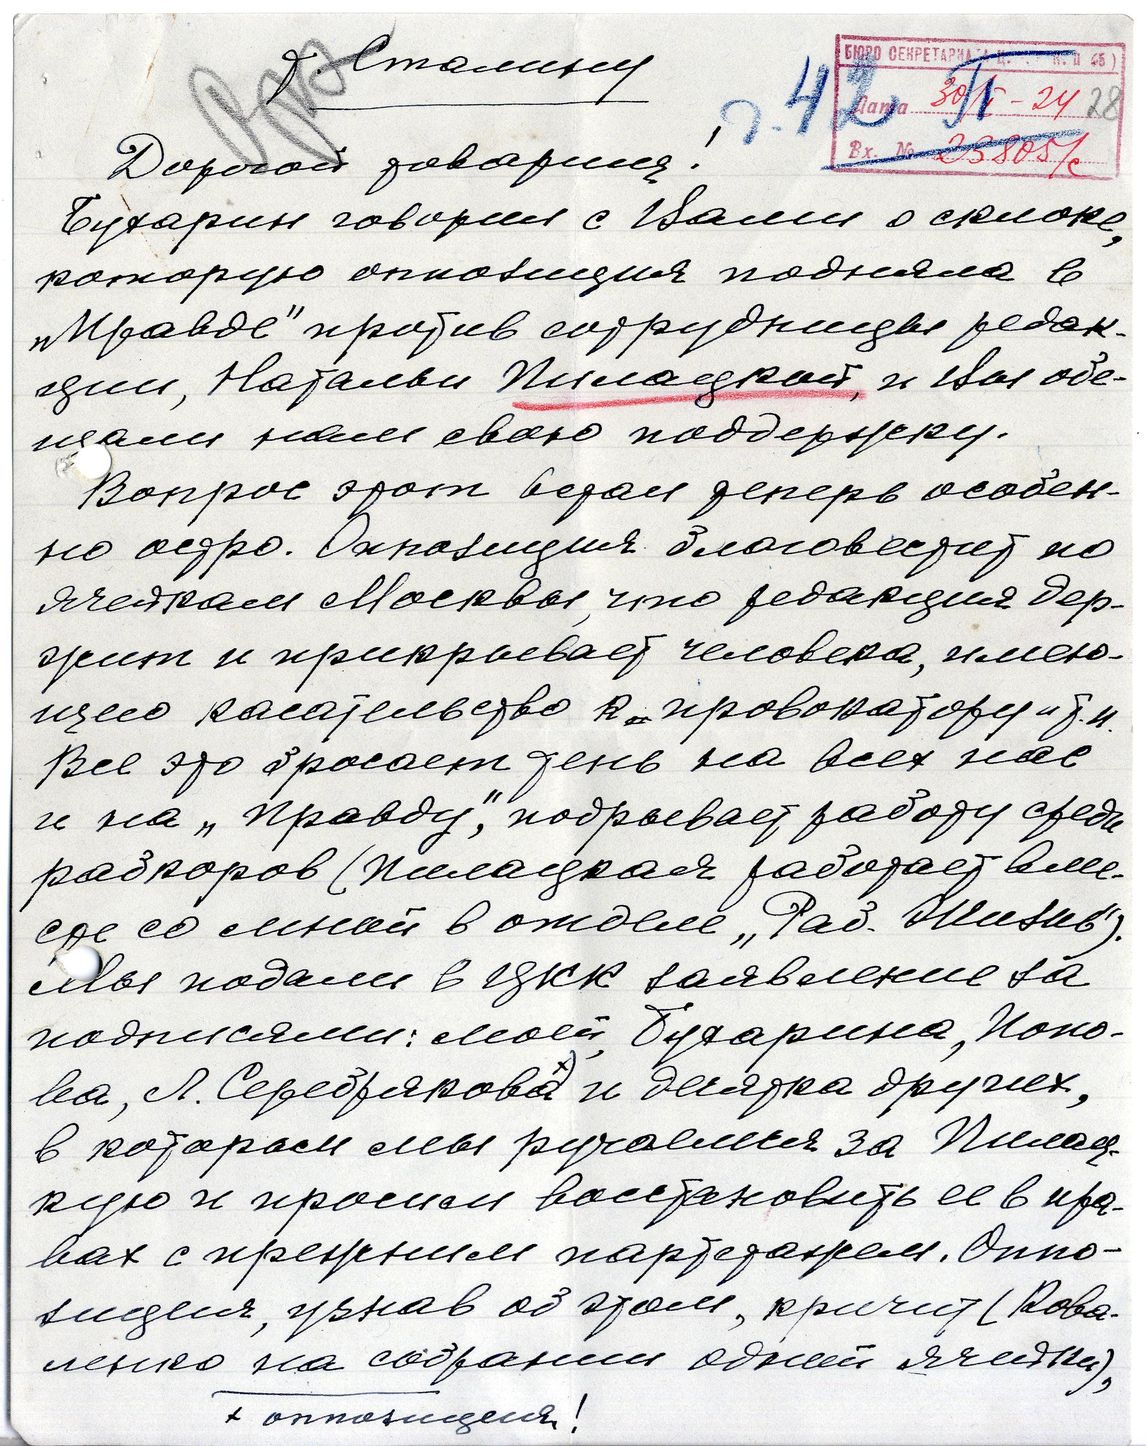 т. Сталину
БЮРО СЕКРЕТАРИАТА Ц.
Дата 30/I - 24 28
Вх. № 23805/с
42
Дорогой товарищ!
Бухарин говорил с Вами о склоке,
которую оппозиция подняла в
„Правде" против сотрудницы редак-
ции, Натальи Пилацкой, и Вы обе-
щали нам свою поддержку.
Вопрос этот встал теперь особен-
но остро. Оппозиция благовестит по
ячейкам Москвы, что редакция дер-
жит и прикрывает человека, имею-
щего касательство к „провокатору" т.н.
Все это бросает тень на всех нас
и на „Правду", подрывает работу среди
рабкоров (Пилацкая работает вме-
сте со мной в отделе „Раб. Жизнь").
Мы подали в ЦКК заявление за
подписями: моей, Бухарина, Попо-
ва, Л. Серебрякова х) и десятка других,
в котором мы ручаемся за Пилац-
кую и просим восстановить ее в пра-
вах с прежним партстажем. Оппо-
зиция, узнав об этом, кричит (Кова-
ленко на собрании одной ячейки),
х оппозиция!